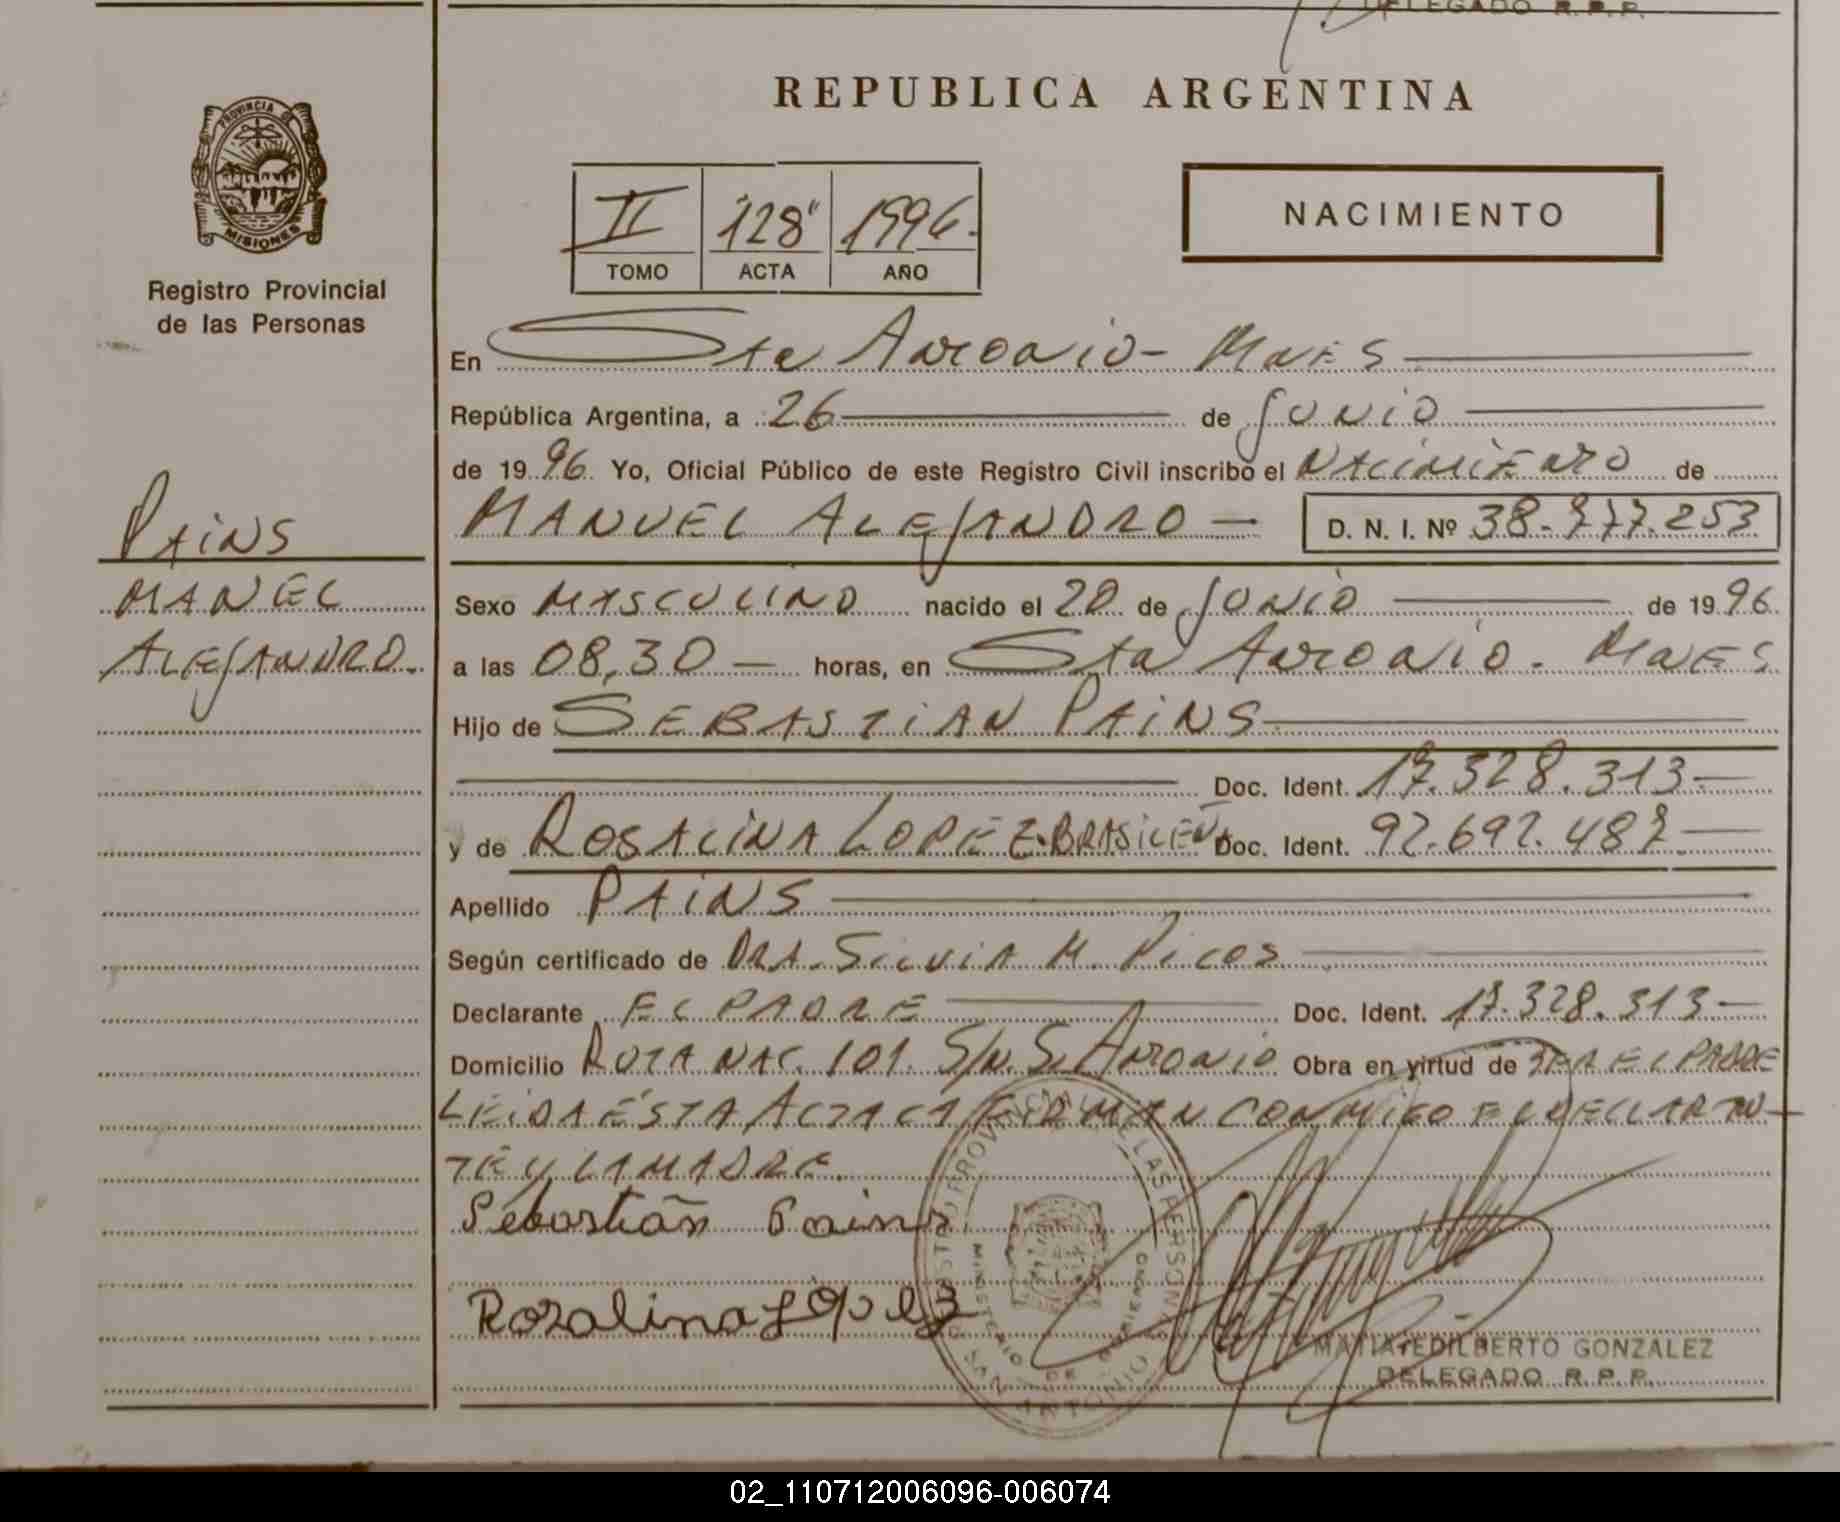 DELEGADO R.P.P.
REPUBLICA ARGENTINA
PROVINCIA DE
MISIONES
Registro Provincial
de las Personas
II "128" 1996.
TOMO ACTA AÑO
NACIMIENTO
En Sta Antonio - Mnes
República Argentina, a 26 de Junio
de 1996. Yo, Oficial Público de este Registro Civil inscribo el NACIMIENTO de
PAINS
MANUEL ALEJANDRO — D. N. I. Nº 38.977.253
MANEL
Sexo MASCULINO nacido el 20 de JUNIO de 1996.
ALEJANDRO.
a las 08,30 — horas, en Sta Antonio - Mnes
Hijo de SEBASTIAN PAINS
Doc. Ident. 17.328.313.—
y de ROSALINA LOPEZ-BRASILEÑA Doc. Ident. 92.692.487.—
Apellido PAINS
Según certificado de DRA. SILVIA M.
Declarante EL PADRE Doc. Ident. 17.328.313—
Domicilio RUTA NAC. 101. S/N. S. ANTONIO Obra en virtud de SER EL PADRE
LEIDA ESTA ACTA LA FIRMAN CONMIGO EL DECLARAN-
TE Y LA MADRE.
Sebastián Pains
Rozalina López
REGISTRO PROVINCIAL DE LAS PERSONAS
MINISTERIO DE GOBIERNO
SAN ANTONIO
MATIAS EDILBERTO GONZALEZ
DELEGADO R.P.P.
02_110712006096-006074